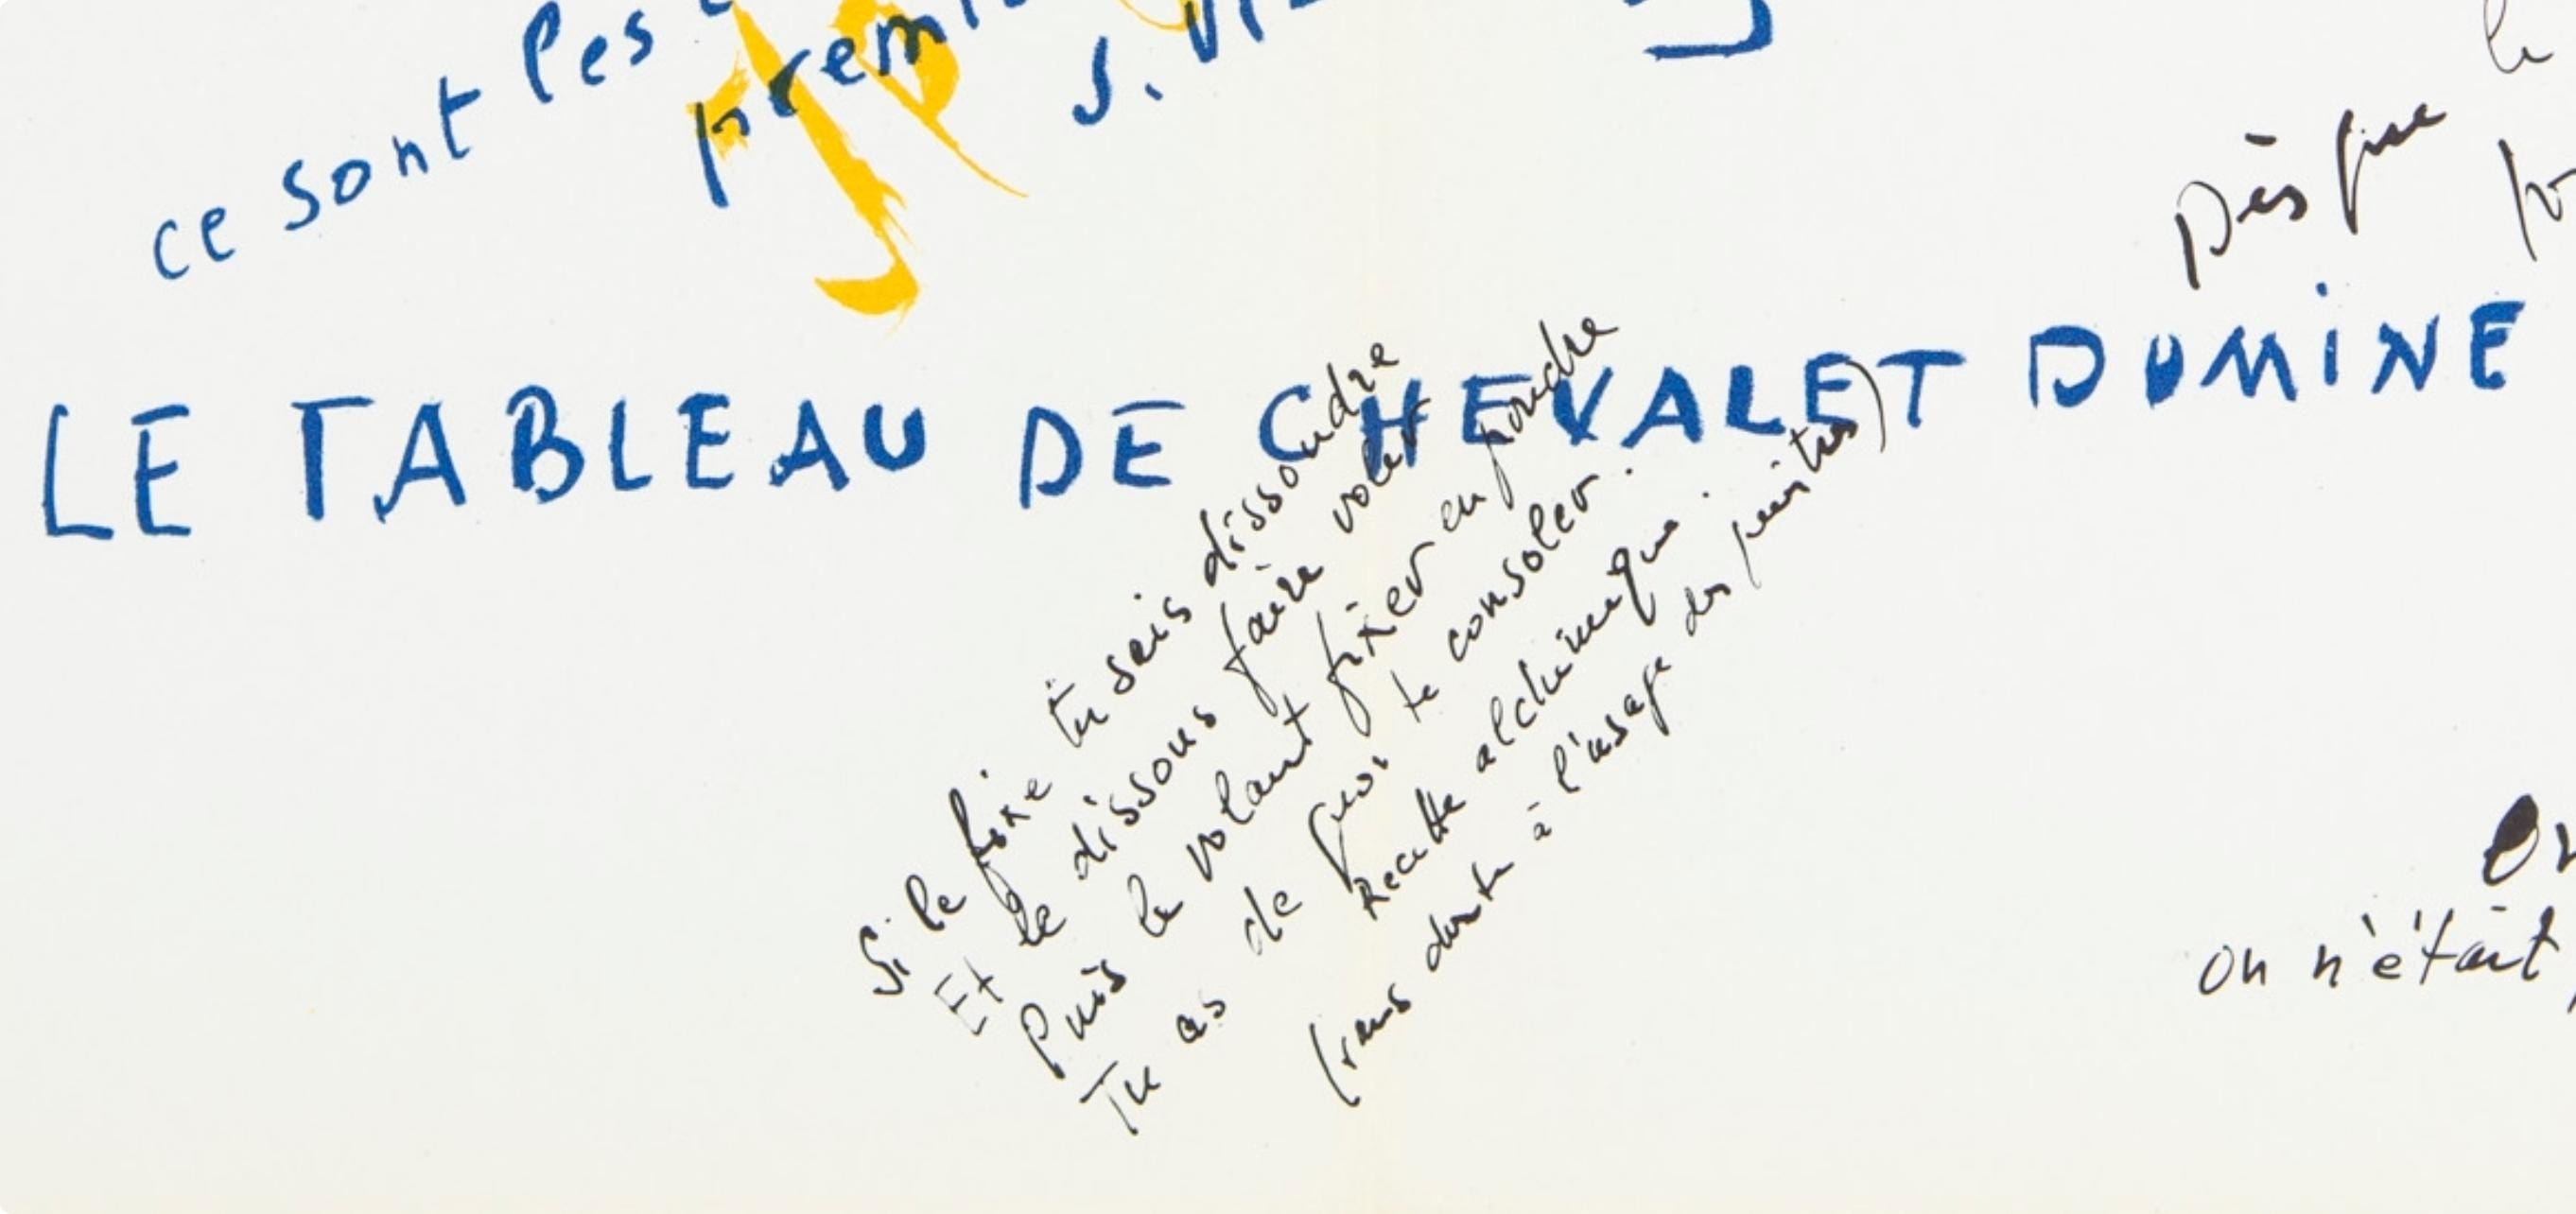 ce sont les
premi
J. VI
LE TABLEAU DE CHEVALET DOMINE
Dès que le
Si le fixe tu sais dissoudre
Et le dissous faire voler
Puis le volant fixer en poudre
Tu as de quoi te consoler.
Recette alchimique.
(sans doute à l'usage des peintres)
on n'était